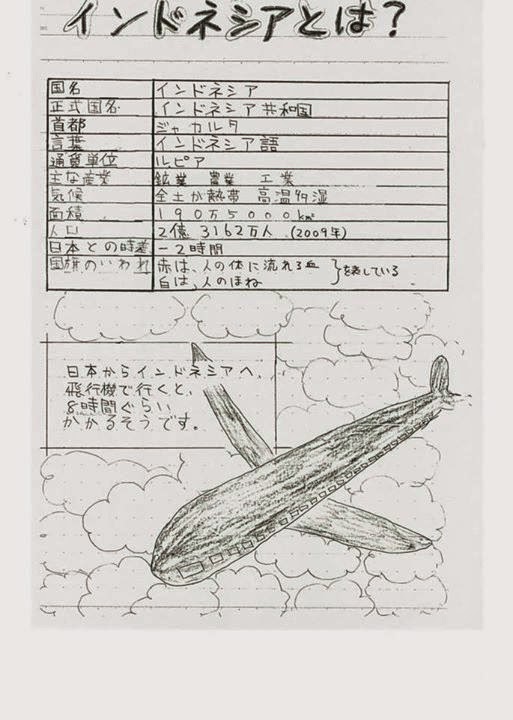 インドネシアとは？
国名 インドネシア
正式国名 インドネシア共和国
首都 ジャカルタ
言葉 インドネシア語
通貨単位 ルピア
主な産業 鉱業 農業 工業
気候 全土が熱帯 高温多湿
面積 190万5000km²
人口 2億3162万人 (2009年)
日本との時差 －2時間
国旗のいわれ 赤は、人の体に流れる血
白は、人のほね }を表している
日本からインドネシアへ、
飛行機で行くと、
8時間ぐらい
かかるそうです。